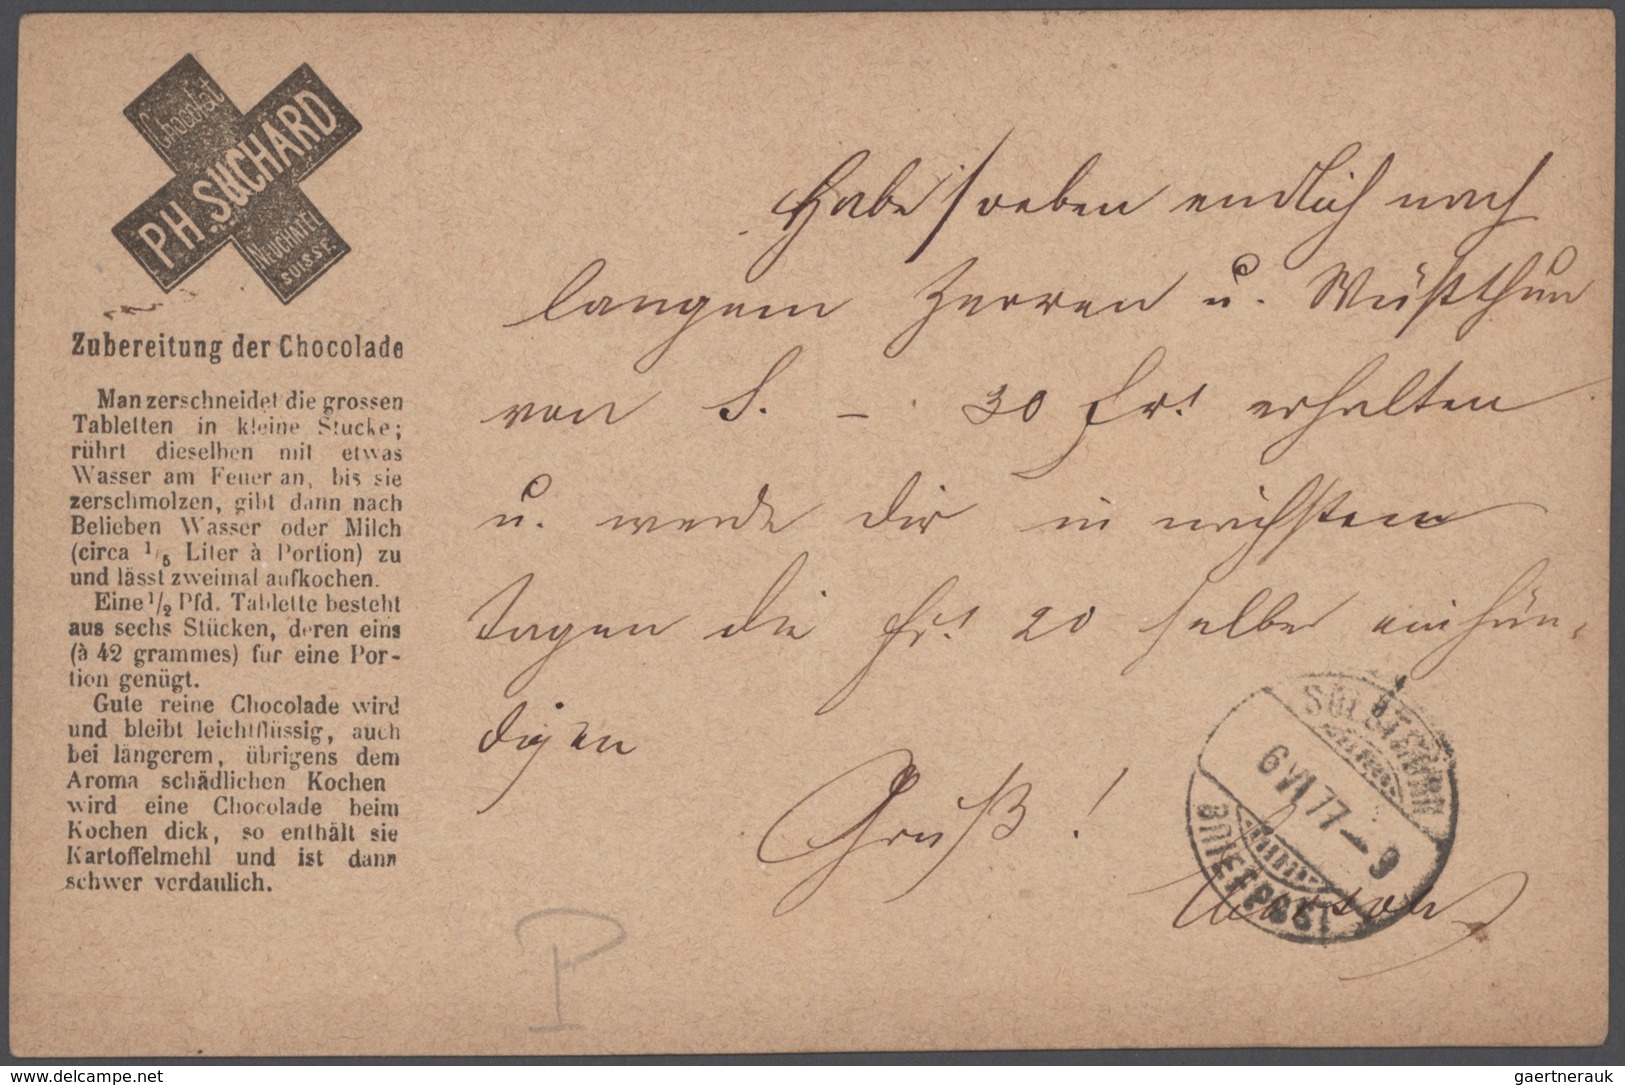 Chocolat
PH. SUCHARD
NEUCHATEL
SUISSE.
Zubereitung der Chocolade
Man zerschneidet die grossen
Tabletten in kleine Stucke;
rührt dieselben mit etwas
Wasser am Feuer an, bis sie
zerschmolzen, gibt dann nach
Belieben Wasser oder Milch
(circa 1/5 Liter à Portion) zu
und lässt zweimal aufkochen.
Eine 1/2 Pfd. Tablette besteht
aus sechs Stücken, deren eins
(à 42 grammes) fur eine Por-
tion genügt.
Gute reine Chocolade wird
und bleibt leichtflüssig, auch
bei längerem, übrigens dem
Aroma schädlichen Kochen
wird eine Chocolade beim
Kochen dick, so enthält sie
Kartoffelmehl und ist dann
schwer verdaulich.
Habe soeben endlich nach
langem Zerren u. Wüstthun
von S. – 30 Frs. erhalten
u. werde dir in nächsten
Tagen die Frs. 20 selber einhän-
digen
Gruß!
SOLOTHURN
6 VI 77 – 9
BRIEFPOST
P
delcampe.net
gaertnerauk